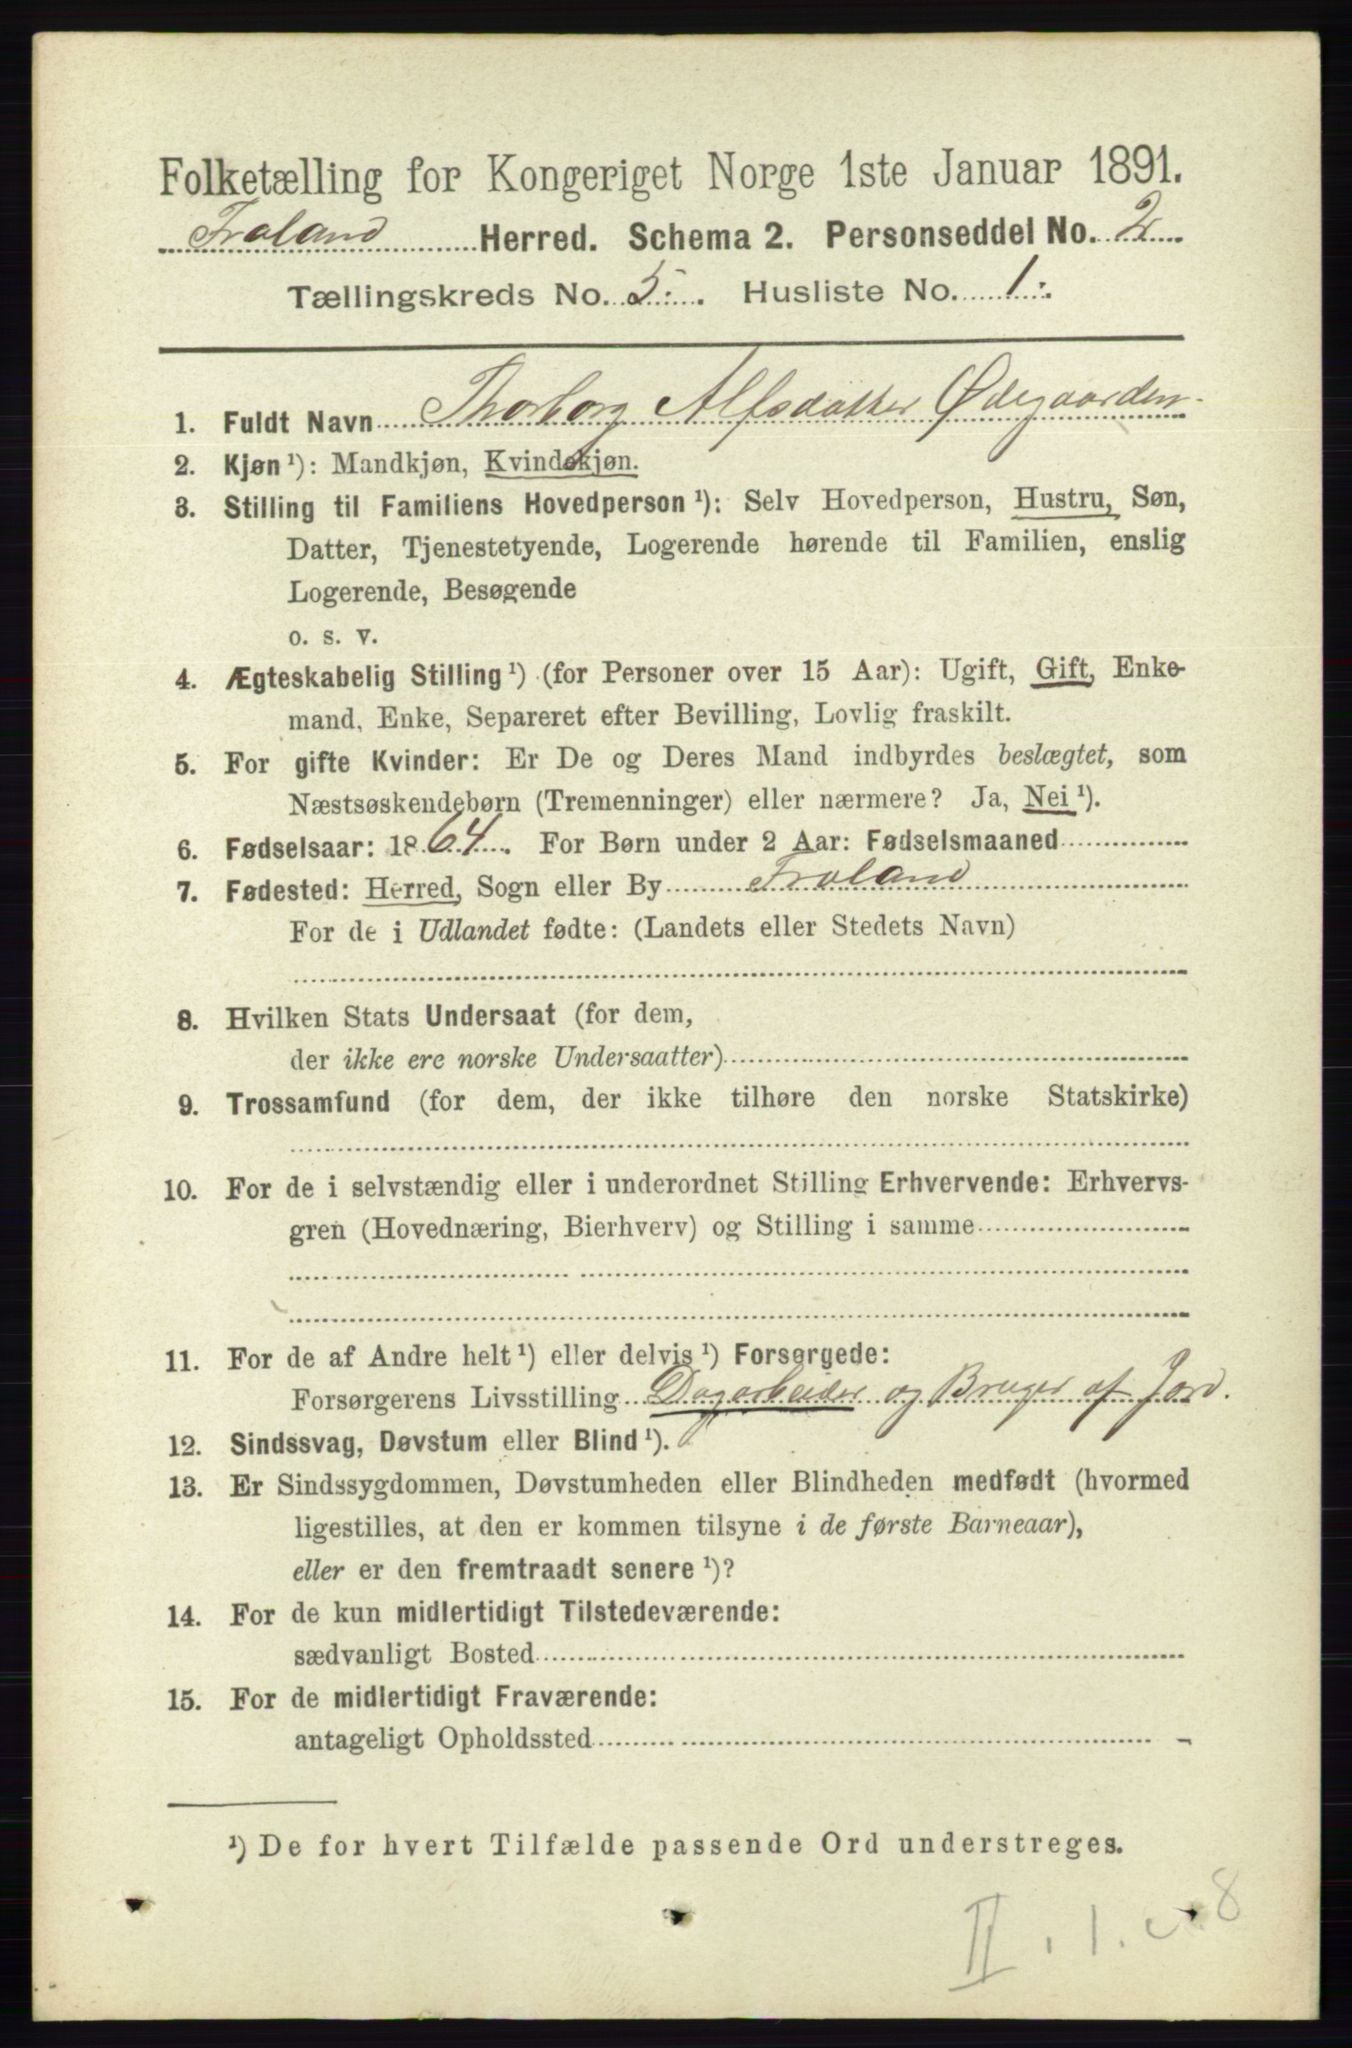 Folketælling for Kongeriget Norge 1ste Januar 1891.
Froland Herred. Schema 2. Personseddel No. 2
Tællingskreds No. 5. Husliste No. 1.
1. Fuldt Navn Thorborg Alfsdatter Ødegaarden
2. Kjøn¹): Mandkjøn, Kvindekjøn.
3. Stilling til Familiens Hovedperson¹): Selv Hovedperson, Hustru, Søn,
Datter, Tjenestetyende, Logerende hørende til Familien, enslig
Logerende, Besøgende
o. s. v.
4. Ægteskabelig Stilling¹) (for Personer over 15 Aar): Ugift, Gift, Enke-
mand, Enke, Separeret efter Bevilling, Lovlig fraskilt.
5. For gifte Kvinder: Er De og Deres Mand indbyrdes beslægtet, som
Næstsøskendebørn (Tremenninger) eller nærmere? Ja, Nei¹).
6. Fødselsaar: 1864. For Børn under 2 Aar: Fødselsmaaned
7. Fødested: Herred, Sogn eller By Froland
For de i Udlandet fødte: (Landets eller Stedets Navn)
8. Hvilken Stats Undersaat (for dem,
der ikke ere norske Undersaatter)
9. Trossamfund (for dem, der ikke tilhøre den norske Statskirke)
10. For de i selvstændig eller i underordnet Stilling Erhvervende: Erhvervs-
gren (Hovednæring, Bierhverv) og Stilling i samme
11. For de af Andre helt¹) eller delvis¹) Forsørgede:
Forsørgerens Livsstilling Dagarbeider og Bruger af Jord.
12. Sindssvag, Døvstum eller Blind¹).
13. Er Sindssygdommen, Døvstumheden eller Blindheden medfødt (hvormed
ligestilles, at den er kommen tilsyne i de første Barneaar),
eller er den fremtraadt senere¹)?
14. For de kun midlertidigt Tilstedeværende:
sædvanligt Bosted
15. For de midlertidigt Fraværende:
antageligt Opholdssted
¹) De for hvert Tilfælde passende Ord understreges.
II. 1. 8